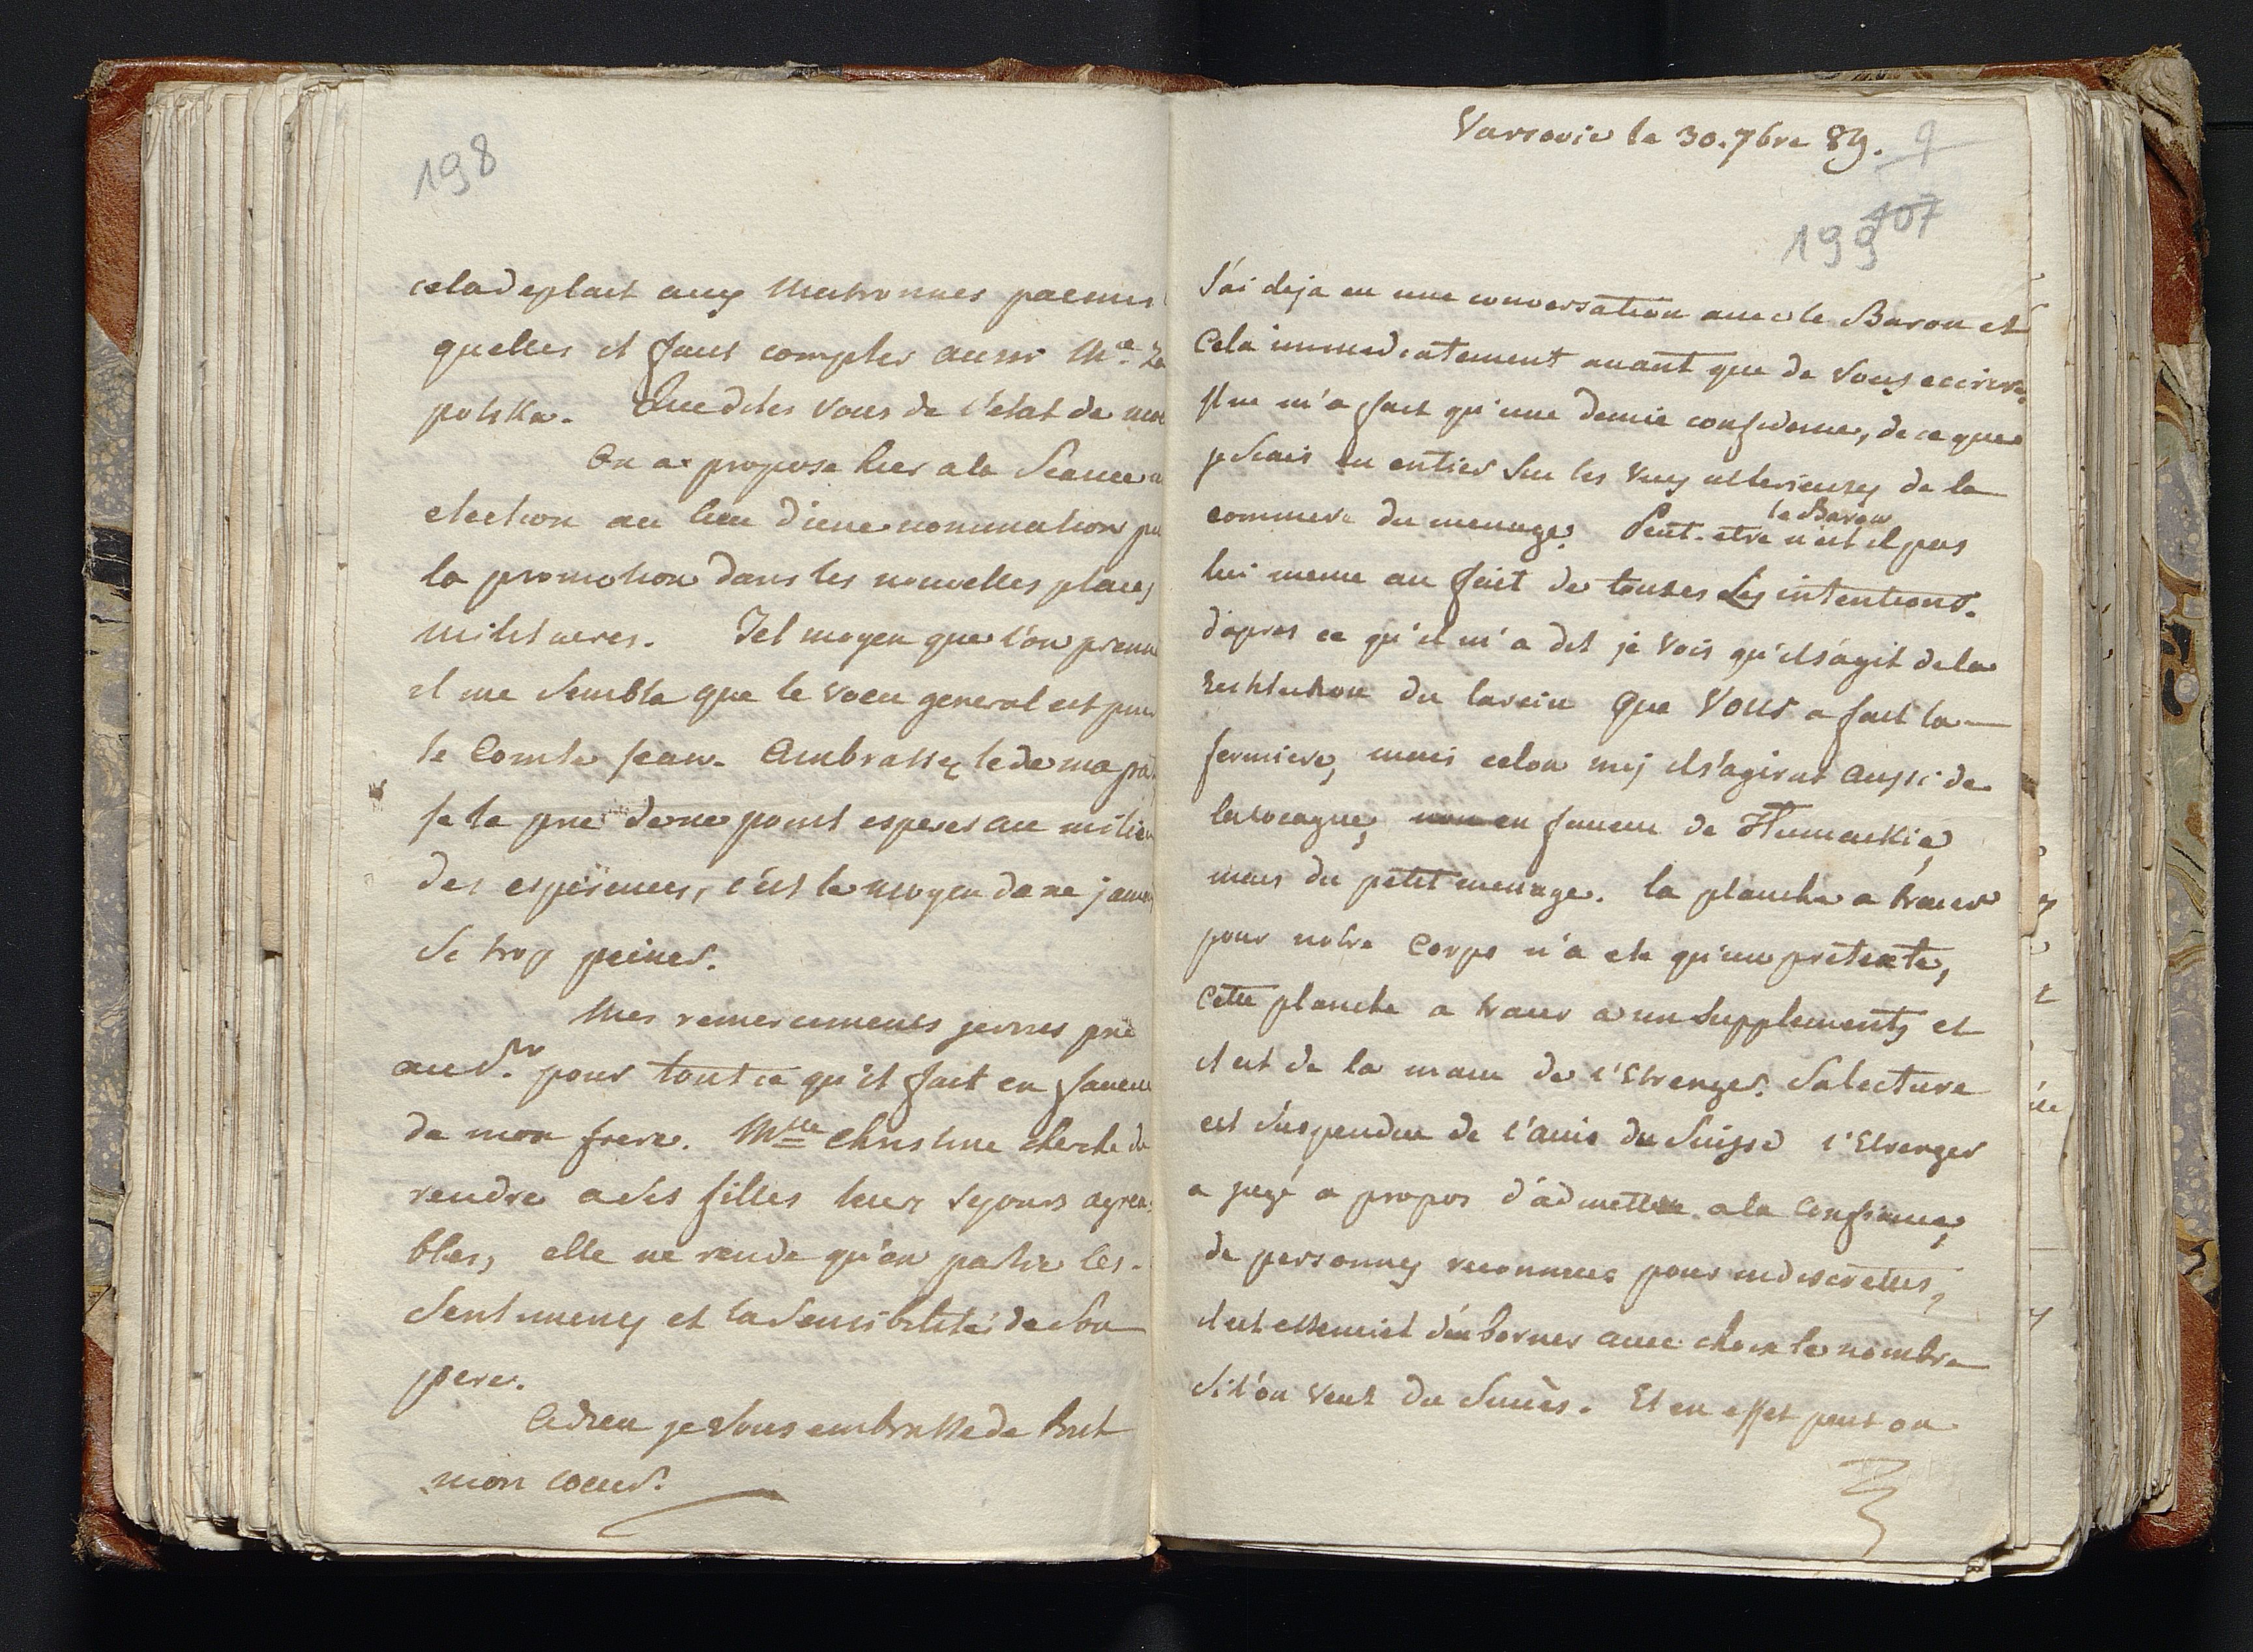 198
cela deplait aux Matronnes parmi les
quelles il faut compter aussi Me. Za
polska. Que dites vous de l'etat de
On a propose hier a la Seance
election au lieu d'une nomination
la promotion dans les nouvelles places
militaires. Tel moyen que l'on prenne
il me semble que le voeu general est pour
le Comte Jean. Ambrassez le de ma part
Je le prie de ne point esperer au milieu
des esperences, c'est le moyen de ne jamais
se trop peiner.
Mes remerciments je vous prie
au Sr. pour tout ce qu'il fait en faveur
de mon frere. Mlle Christine cherche de
rendre a ses filles leur sejours agrea-
bles, elle ne rende qu'en partie les
sentimens et la sensibilité de son
pere.
Adieu je vous embrasse de tout
mon coeur.
Varsovie le 30. 7bre 89. 9
107
199
J'ai deja eu une conversation avec le Baron et
Cela immediatement avant que de vous ecrire,
Il ne m'a fait qu'une demie confidence, de ce que
je sçais en entier sur les vues ulterieures de la
commere du menage. Peut-etre n'est il pas
le Baron
lui meme au fait de toutes les intentions.
d'apres ce qu'il m'a dit je vois qu'il s'agit de la
restitution du larcin que vous a fait la
fermiere, mais celon moi il s'agirat aussi de
non en faveur de
mais du petit menage. la planche a tracer
pour notre Corps n'a ete qu'un pretexte,
Cette planche a tracer a un supplement, et
il est de la main de l'Etranger. Sa lecture
est suspendue de l'avis du Suisse l'Etranger
a jugé a propos d'admettre a la Confiance,
de personnes reconnues pour indiscrettes,
il est essenciel d'en borner avec choix le nombre
si l'on veut du Succès. Et en effet peut on